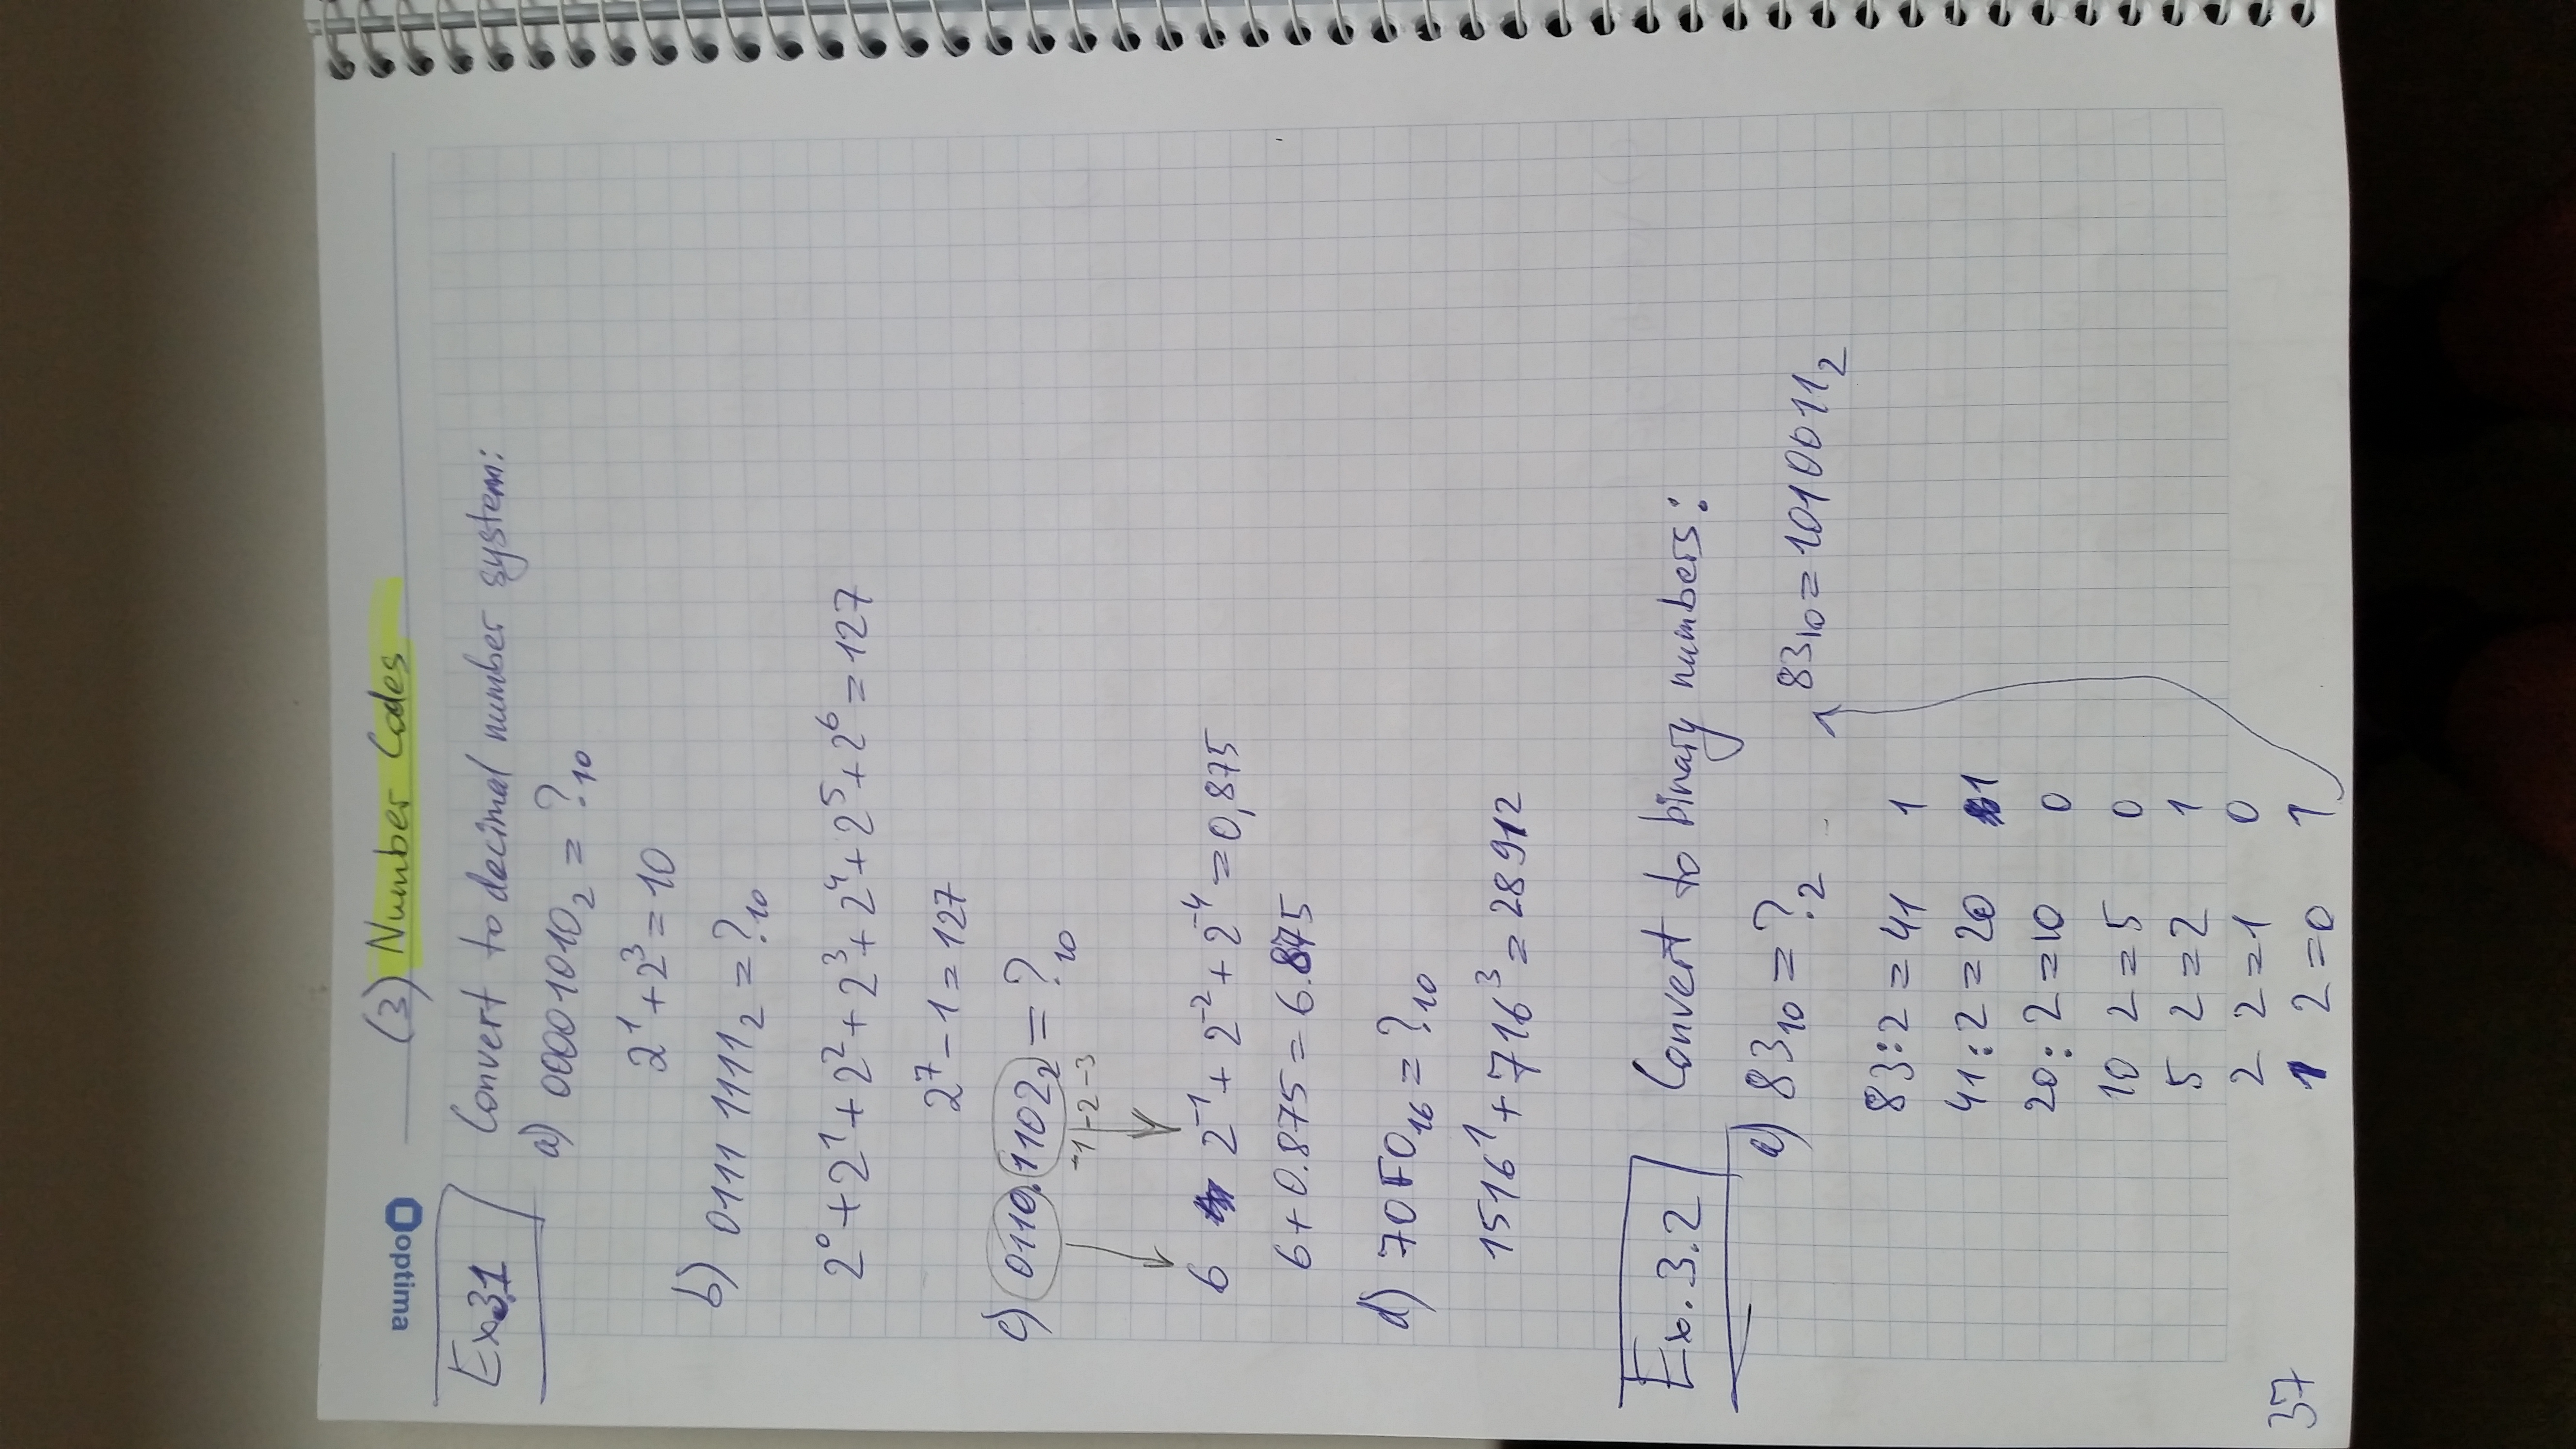 optima
(3) Number Codes
Ex3.1 Convert to decimal number system:
a) 00001010₂ = ?₁₀
2¹ + 2³ = 10
b) 0111 1111₂ = ?₁₀
2⁰ + 2¹ + 2² + 2³ + 2⁴ + 2⁵ + 2⁶ = 127
2⁷ - 1 = 127
c) 0110.1102₂ = ?₁₀
-1 -2 -3
6 2⁻¹ + 2⁻² + 2⁻⁴ = 0,875
6 + 0.875 = 6.875
d) 70F0₁₆ = ?₁₀
1516¹ + 716³ = 28912
Ex. 3.2 Convert to binary numbers:
a) 83₁₀ = ?₂ 83₁₀ = 1010011₂
83:2 = 41 1
41:2 = 20 1
20:2 = 10 0
10 2 = 5 0
5 2 = 2 1
2 2 = 1 0
1 2 = 0 1
37